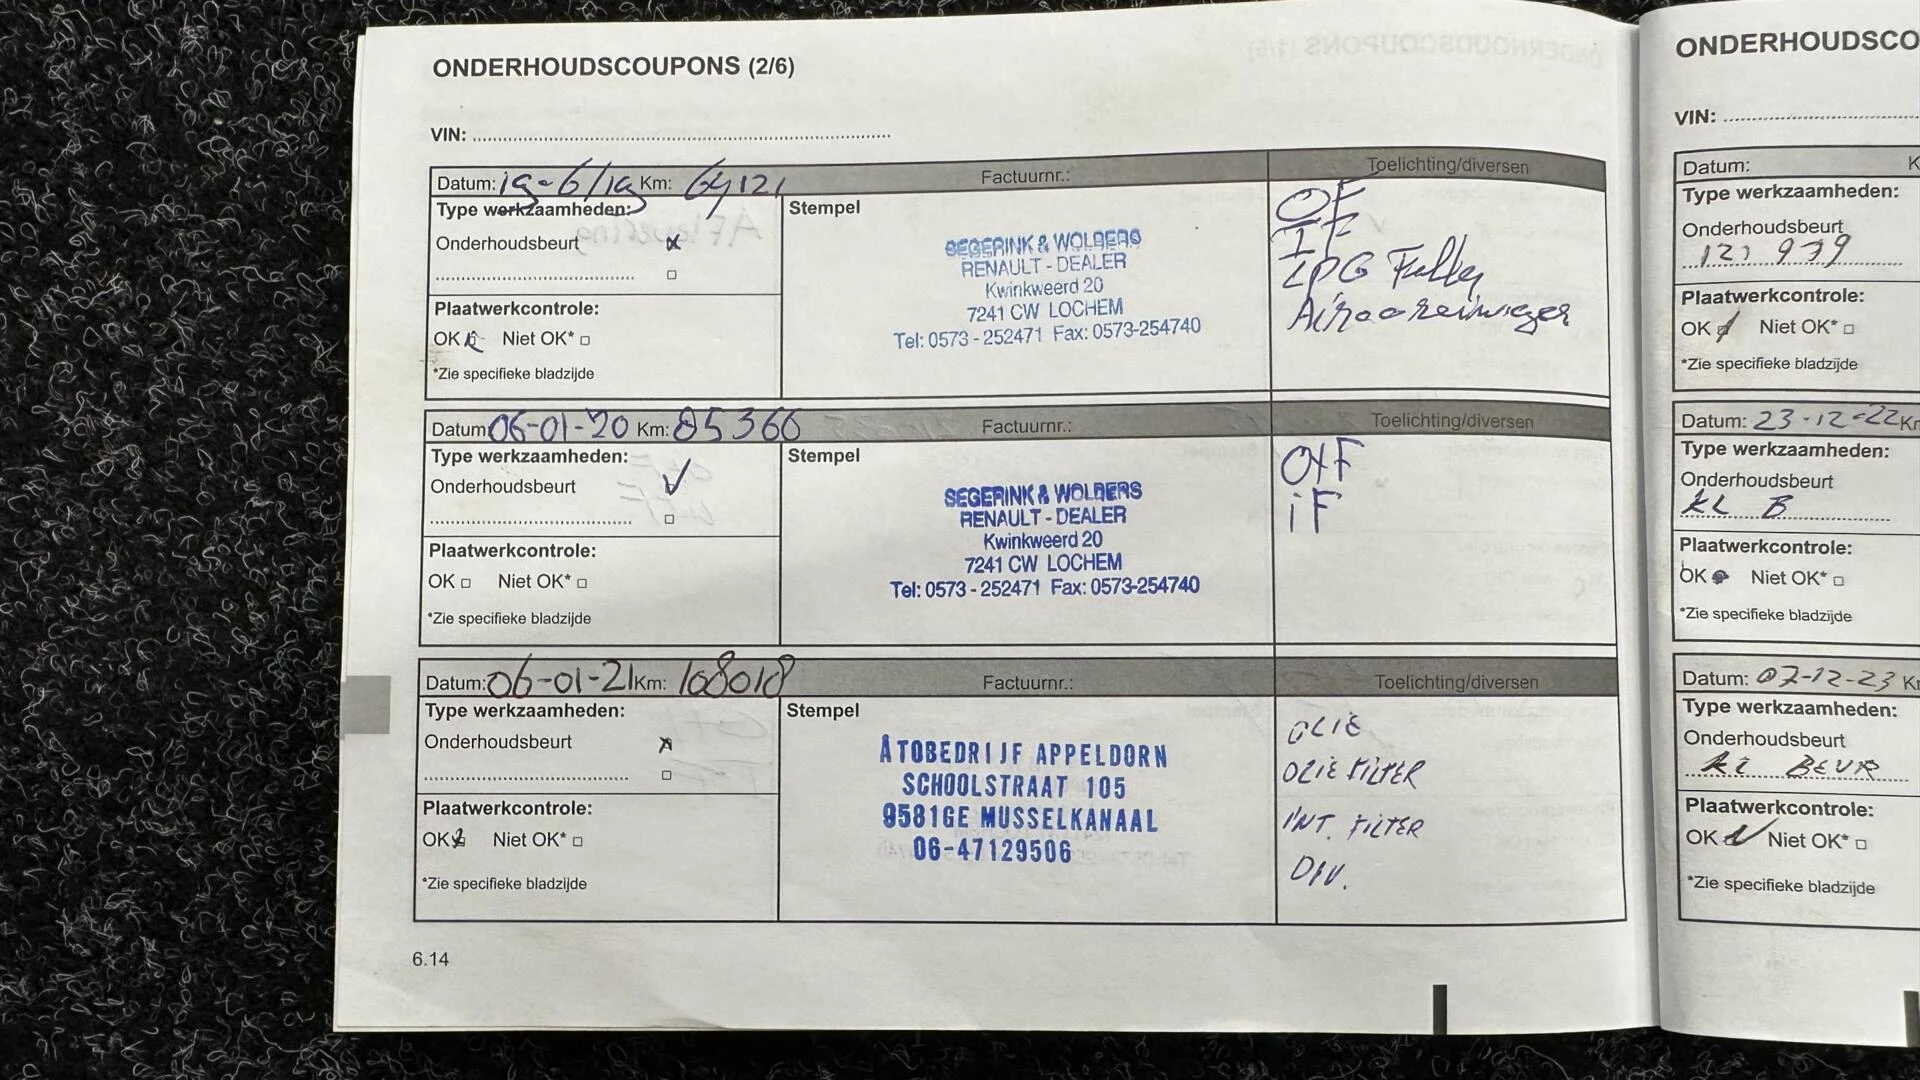 ONDERHOUDSCOUPONS (2/6)
VIN:
Datum: 19-6/19 Km: 64121 Factuurnr.: Toelichting/diversen
Type werkzaamheden:
Onderhoudsbeurt x
Stempel
SEGERINK & WOLBERS
RENAULT - DEALER
Kwinkweerd 20
7241 CW LOCHEM
Tel: 0573 - 252471 Fax: 0573-254740
OF
IF
LPG
Plaatwerkcontrole:
OK Niet OK*
*Zie specifieke bladzijde
Datum: 06-01-20 Km: 85366 Factuurnr.: Toelichting/diversen
Type werkzaamheden:
Onderhoudsbeurt ✓
Stempel
SEGERINK & WOLBERS
RENAULT - DEALER
Kwinkweerd 20
7241 CW LOCHEM
Tel: 0573 - 252471 Fax: 0573-254740
O+F
iF
Plaatwerkcontrole:
OK Niet OK*
*Zie specifieke bladzijde
Datum: 06-01-21 Km: 108018 Factuurnr.: Toelichting/diversen
Type werkzaamheden:
Onderhoudsbeurt x
Stempel
ATOBEDRIJF APPELDORN
SCHOOLSTRAAT 105
9581GE MUSSELKANAAL
06-47129506
OLIE
OLIE FILTER
INT. FILTER
DIV.
Plaatwerkcontrole:
OK Niet OK*
*Zie specifieke bladzijde
6.14
ONDERHOUDSCO
VIN:
Datum: K
Type werkzaamheden:
Onderhoudsbeurt
121 979
Plaatwerkcontrole:
OK Niet OK*
*Zie specifieke bladzijde
Datum: 23-12-22 Kr
Type werkzaamheden:
Onderhoudsbeurt
KL B
Plaatwerkcontrole:
OK Niet OK*
*Zie specifieke bladzijde
Datum: 07-12-23 Kr
Type werkzaamheden:
Onderhoudsbeurt
KL BEUR
Plaatwerkcontrole:
OK Niet OK*
*Zie specifieke bladzijde